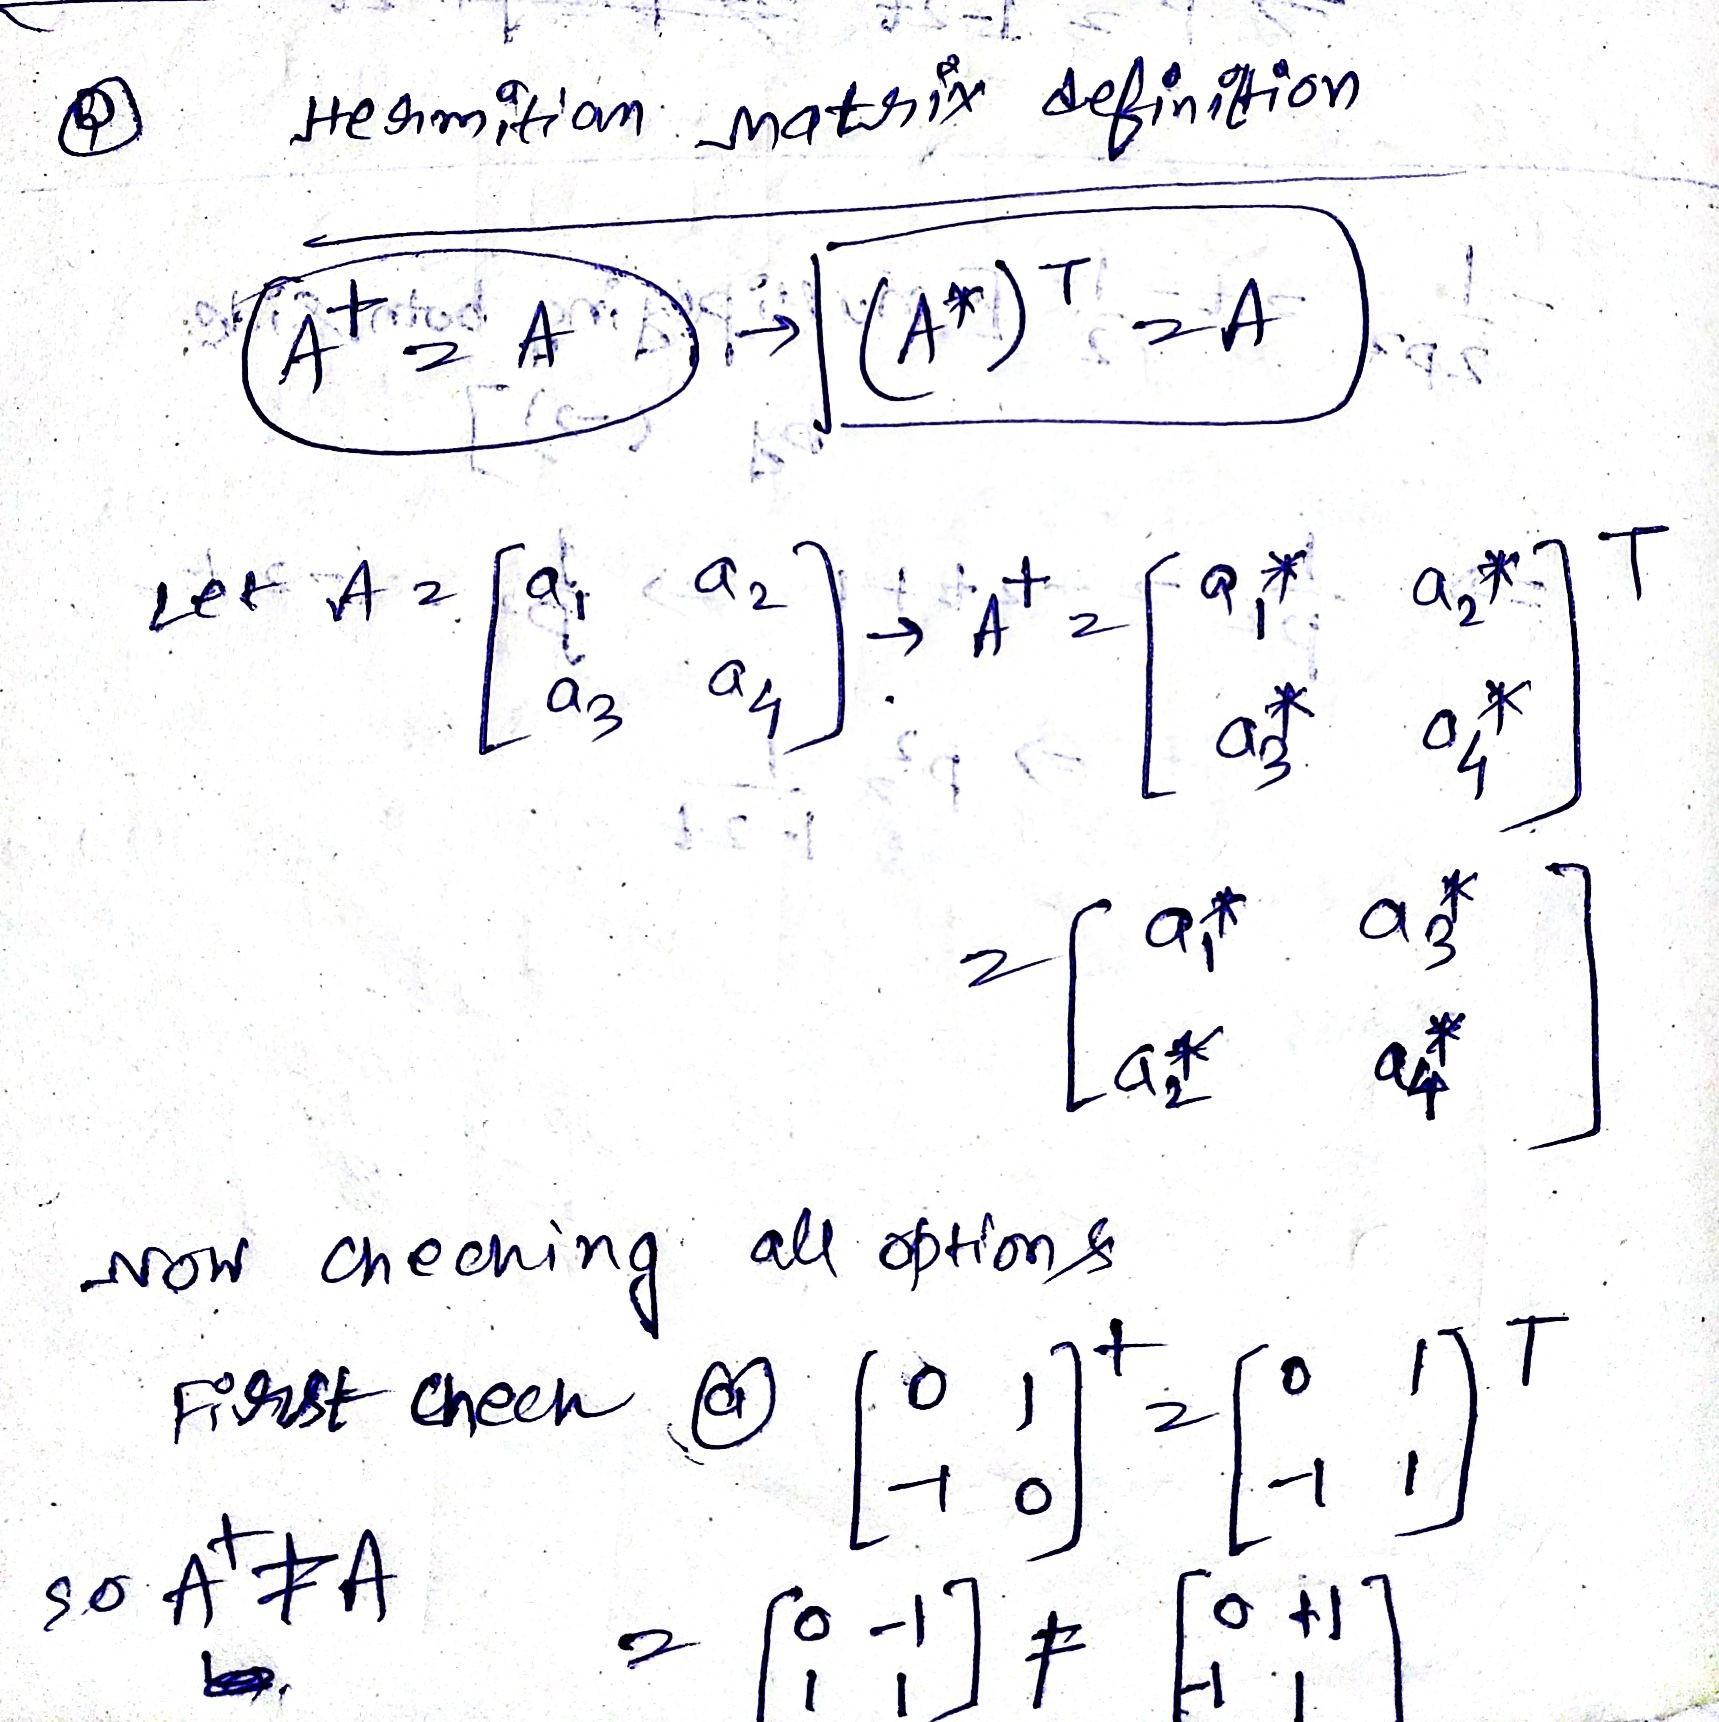 Q Hermitian matrix definition
A† = A → (A*)ᵀ = A
Let A = [a₁ a₂ → A† = [a₁* a₂*]ᵀ
a₃ a₄] . a₃* a₄*
= [a₁* a₃*
a₂* a₄*]
Now checking all options
First check (a) [0 1]† = [0 1]ᵀ
-1 0 -1 1
so A† ≠ A = [0 -1] ≠ [0 +1]
1 1 -1 1